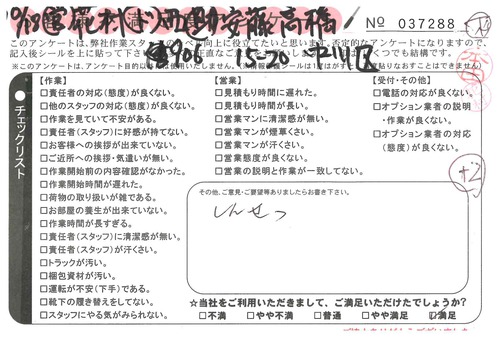 No 037288
このアンケートは、弊社作業スタッ
向上に役立てたいと思います。否定的なアンケートになりますので、
記入後シールを上に貼って下さ
くつでも結構です。
【作業】
□責任者の対応(態度)が良くない。
□他のスタッフの対応(態度)が良くない。
□作業を見ていて不安がある。
□責任者(スタッフ)に好感が持てない。
□お客様への挨拶が出来ていない。
□ご近所への挨拶・気遣いが無い。
□作業開始前の内容確認がなかった。
□作業開始時間が遅れた。
□荷物の取り扱いが雑である。
□お部屋の養生が出来ていない。
□作業時間が長すぎる。
□責任者(スタッフ)に清潔感が無い。
□責任者(スタッフ)が汗くさい。
□トラックが汚い。
□梱包資材が汚い。
□運転が不安(下手)である。
□靴下の履き替えをしてない。
□スタッフにやる気がみられない。
【営業】
□見積もり時間に遅れた。
□見積もり時間が長い。
□営業マンに清潔感が無い。
□営業マンが煙草くさい。
□営業マンが汗くさい。
□営業態度が良くない。
□営業の説明と作業が一致してない。
【受付・その他】
□電話の対応が良くない。
□オプション業者の説明
・作業が良くない。
□オプション業者の対応
(態度)が良くない。
チェックリスト
+2
その他、ご意見・ご要望等ありましたらお書き下さい。
しんせつ
☆当社をご利用いただきまして、ご満足いただけたでしょうか?
□不満 □やや不満 □普通 □やや満足 ☑満足